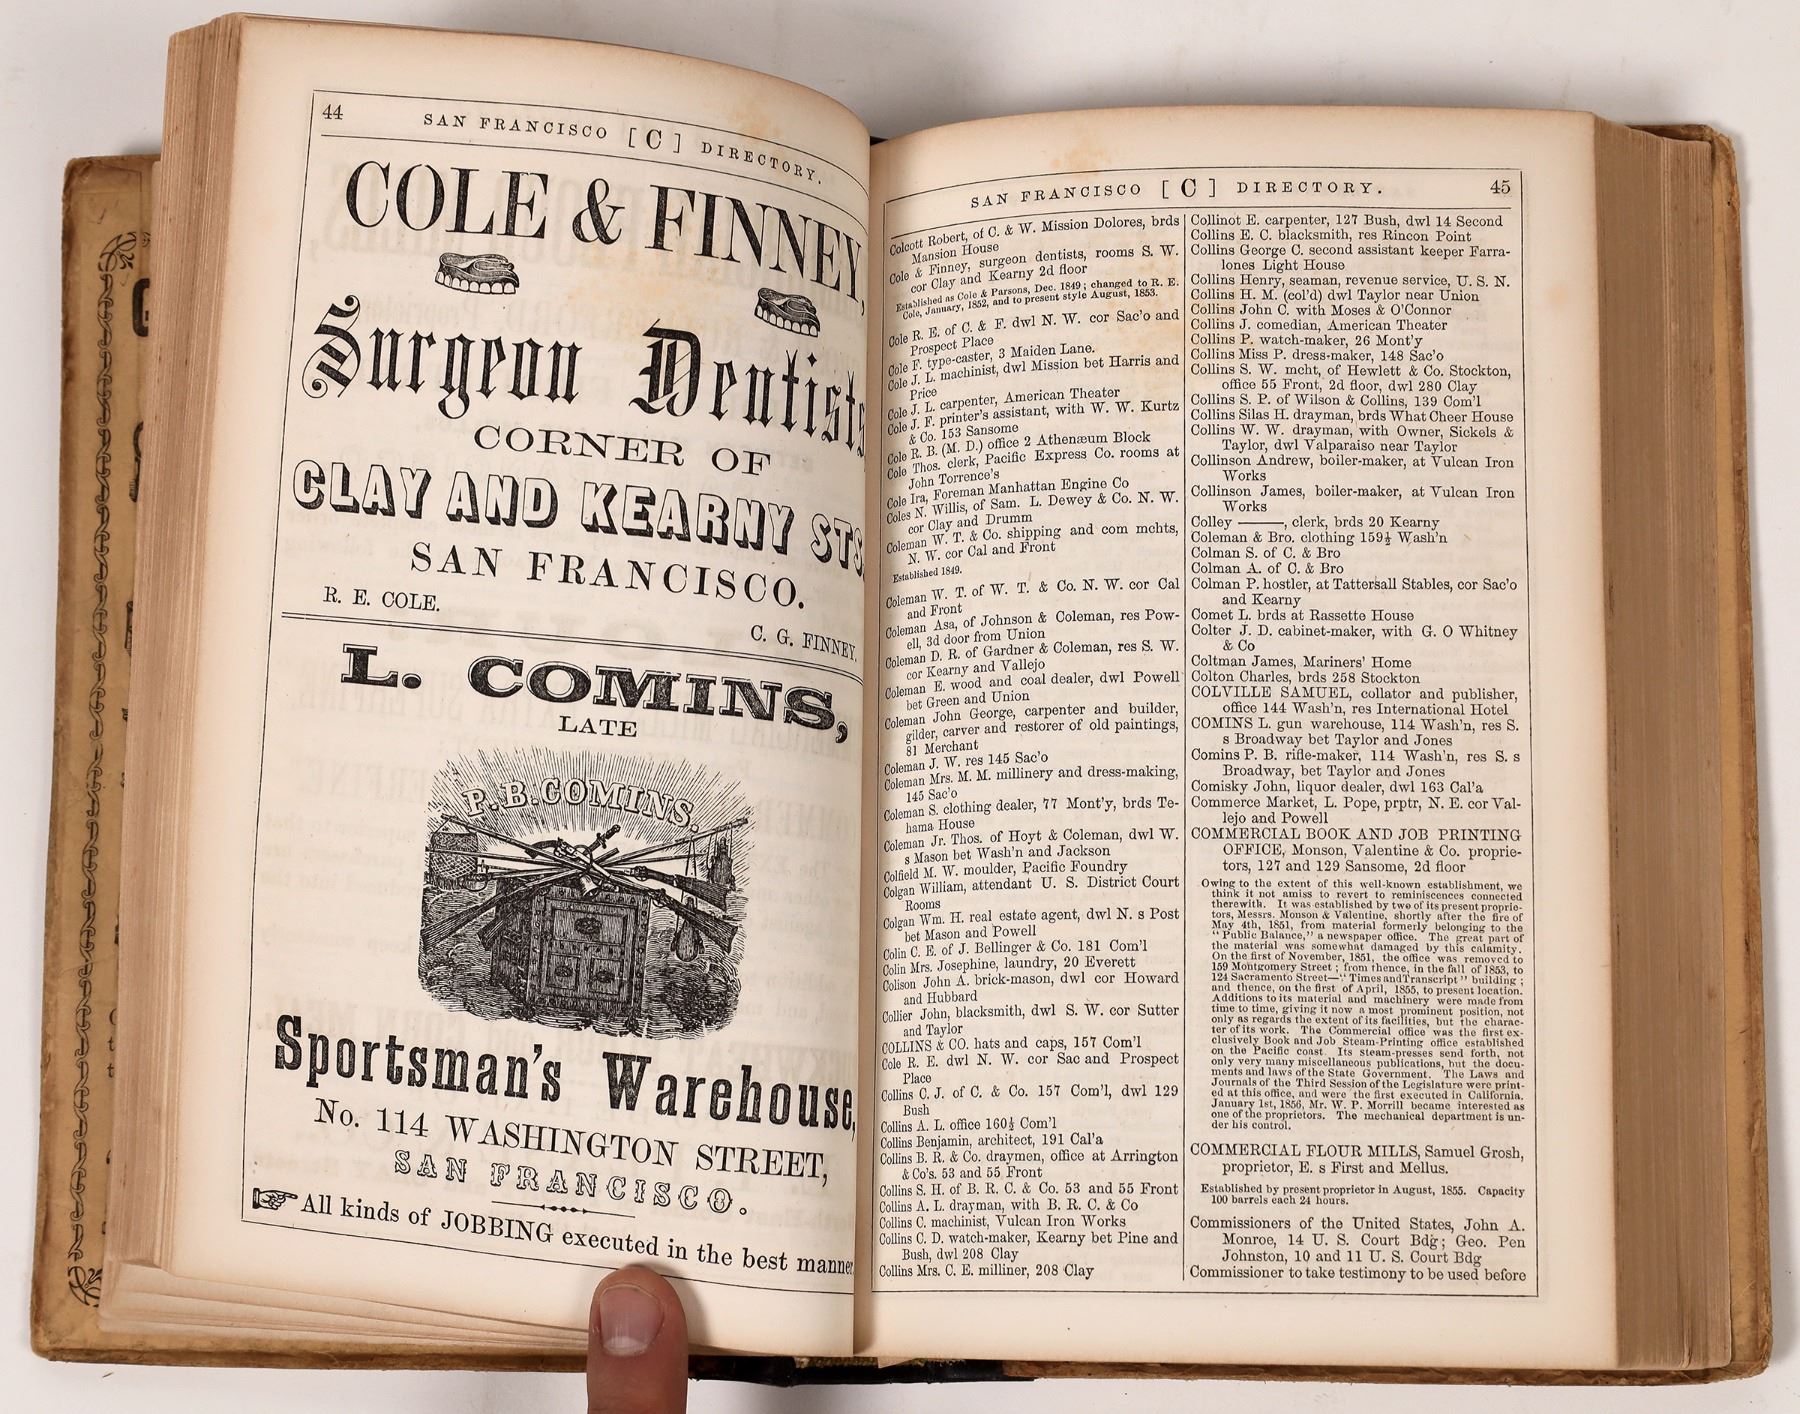 44
SAN FRANCISCO [ C ] DIRECTORY.
COLE & FINNEY,
Surgeon Dentists,
CORNER OF
CLAY AND KEARNY STS.
SAN FRANCISCO.
R. E. COLE.
C. G. FINNEY.
L. COMINS,
LATE
P. B. COMINS.
Sportsman's Warehouse,
No. 114 WASHINGTON STREET,
SAN FRANCISCO.
All kinds of JOBBING executed in the best manner
SAN FRANCISCO [ C ] DIRECTORY.
45
Colcott Robert, of C. & W. Mission Dolores, brds
Mansion House
Cole & Finney, surgeon dentists, rooms S. W.
cor Clay and Kearny 2d floor
Established as Cole & Parsons, Dec. 1849; changed to R. E.
Cole, January, 1852, and to present style August, 1853.
Cole R. E. of C. & F. dwl N. W. cor Sac'o and
Prospect Place
Cole F. type-caster, 3 Maiden Lane.
Cole J. L. machinist, dwl Mission bet Harris and
Price
Cole J. L. carpenter, American Theater
Cole J. F. printer's assistant, with W. W. Kurtz
& Co. 153 Sansome
Cole R. B. (M. D.) office 2 Athenæum Block
Cole Thos. clerk, Pacific Express Co. rooms at
John Torrence's
Cole Ira, Foreman Manhattan Engine Co
Coles N. Willis, of Sam. L. Dewey & Co. N. W.
cor Clay and Drumm
Coleman W. T. & Co. shipping and com mchts,
N. W. cor Cal and Front
Established 1849.
Coleman W. T. of W. T. & Co. N. W. cor Cal
and Front
Coleman Asa, of Johnson & Coleman, res Pow-
ell, 3d door from Union
Coleman D. R. of Gardner & Coleman, res S. W.
cor Kearny and Vallejo
Coleman E. wood and coal dealer, dwl Powell
bet Green and Union
Coleman John George, carpenter and builder,
gilder, carver and restorer of old paintings,
81 Merchant
Coleman J. W. res 145 Sac'o
Coleman Mrs. M. M. millinery and dress-making,
145 Sac'o
Coleman S. clothing dealer, 77 Mont'y, brds Te-
hama House
Coleman Jr. Thos. of Hoyt & Coleman, dwl W.
s Mason bet Wash'n and Jackson
Colfield M. W. moulder, Pacific Foundry
Colgan William, attendant U. S. District Court
Rooms
Colgan Wm. H. real estate agent, dwl N. s Post
bet Mason and Powell
Colin C. E. of J. Bellinger & Co. 181 Com'l
Colin Mrs. Josephine, laundry, 20 Everett
Colison John A. brick-mason, dwl cor Howard
and Hubbard
Collier John, blacksmith, dwl S. W. cor Sutter
and Taylor
COLLINS & CO. hats and caps, 157 Com'l
Cole R. E. dwl N. W. cor Sac and Prospect
Place
Collins C. J. of C. & Co. 157 Com'l, dwl 129
Bush
Collins A. L. office 160½ Com'l
Collins Benjamin, architect, 191 Cal'a
Collins B. R. & Co. draymen, office at Arrington
& Co's. 53 and 55 Front
Collins S. H. of B. R. C. & Co. 53 and 55 Front
Collins A. L. drayman, with B. R. C. & Co
Collins C. machinist, Vulcan Iron Works
Collins C. D. watch-maker, Kearny bet Pine and
Bush, dwl 208 Clay
Collins Mrs. C. E. milliner, 208 Clay
Collinot E. carpenter, 127 Bush, dwl 14 Second
Collins E. C. blacksmith, res Rincon Point
Collins George C. second assistant keeper Farra-
lones Light House
Collins Henry, seaman, revenue service, U. S. N.
Collins H. M. (col'd) dwl Taylor near Union
Collins John C. with Moses & O'Connor
Collins J. comedian, American Theater
Collins P. watch-maker, 26 Mont'y
Collins Miss P. dress-maker, 148 Sac'o
Collins S. W. mcht, of Hewlett & Co. Stockton,
office 55 Front, 2d floor, dwl 280 Clay
Collins S. P. of Wilson & Collins, 139 Com'l
Collins Silas H. drayman, brds What Cheer House
Collins W. W. drayman, with Owner, Sickels &
Taylor, dwl Valparaiso near Taylor
Collinson Andrew, boiler-maker, at Vulcan Iron
Works
Collinson James, boiler-maker, at Vulcan Iron
Works
Colley ——, clerk, brds 20 Kearny
Coleman & Bro. clothing 159½ Wash'n
Colman S. of C. & Bro
Colman A. of C. & Bro
Colman P. hostler, at Tattersall Stables, cor Sac'o
and Kearny
Comet L. brds at Rassette House
Colter J. D. cabinet-maker, with G. O Whitney
& Co
Coltman James, Mariners' Home
Colton Charles, brds 258 Stockton
COLVILLE SAMUEL, collator and publisher,
office 144 Wash'n, res International Hotel
COMINS L. gun warehouse, 114 Wash'n, res S.
s Broadway bet Taylor and Jones
Comins P. B. rifle-maker, 114 Wash'n, res S. s
Broadway, bet Taylor and Jones
Comisky John, liquor dealer, dwl 163 Cal'a
Commerce Market, L. Pope, prptr, N. E. cor Val-
lejo and Powell
COMMERCIAL BOOK AND JOB PRINTING
OFFICE, Monson, Valentine & Co. proprie-
tors, 127 and 129 Sansome, 2d floor
Owing to the extent of this well-known establishment, we
think it not amiss to revert to reminiscences connected
therewith. It was established by two of its present proprie-
tors, Messrs. Monson & Valentine, shortly after the fire of
May 4th, 1851, from material formerly belonging to the
"Public Balance," a newspaper office. The great part of
the material was somewhat damaged by this calamity.
On the first of November, 1851, the office was removed to
159 Montgomery Street; from thence, in the fall of 1853, to
124 Sacramento Street—"Times and Transcript" building;
and thence, on the first of April, 1855, to present location.
Additions to its material and machinery were made from
time to time, giving it now a most prominent position, not
only as regards the extent of its facilities, but the charac-
ter of its work. The Commercial office was the first ex-
clusively Book and Job Steam-Printing office established
on the Pacific coast. Its steam-presses send forth, not
only very many miscellaneous publications, but the docu-
ments and laws of the State Government. The Laws and
Journals of the Third Session of the Legislature were print-
ed at this office, and were the first executed in California.
January 1st, 1856, Mr. W. P. Morrill became interested as
one of the proprietors. The mechanical department is un-
der his control.
COMMERCIAL FLOUR MILLS, Samuel Grosh,
proprietor, E. s First and Mellus.
Established by present proprietor in August, 1855. Capacity
100 barrels each 24 hours.
Commissioners of the United States, John A.
Monroe, 14 U. S. Court Bdg; Geo. Pen
Johnston, 10 and 11 U. S. Court Bdg
Commissioner to take testimony to be used before